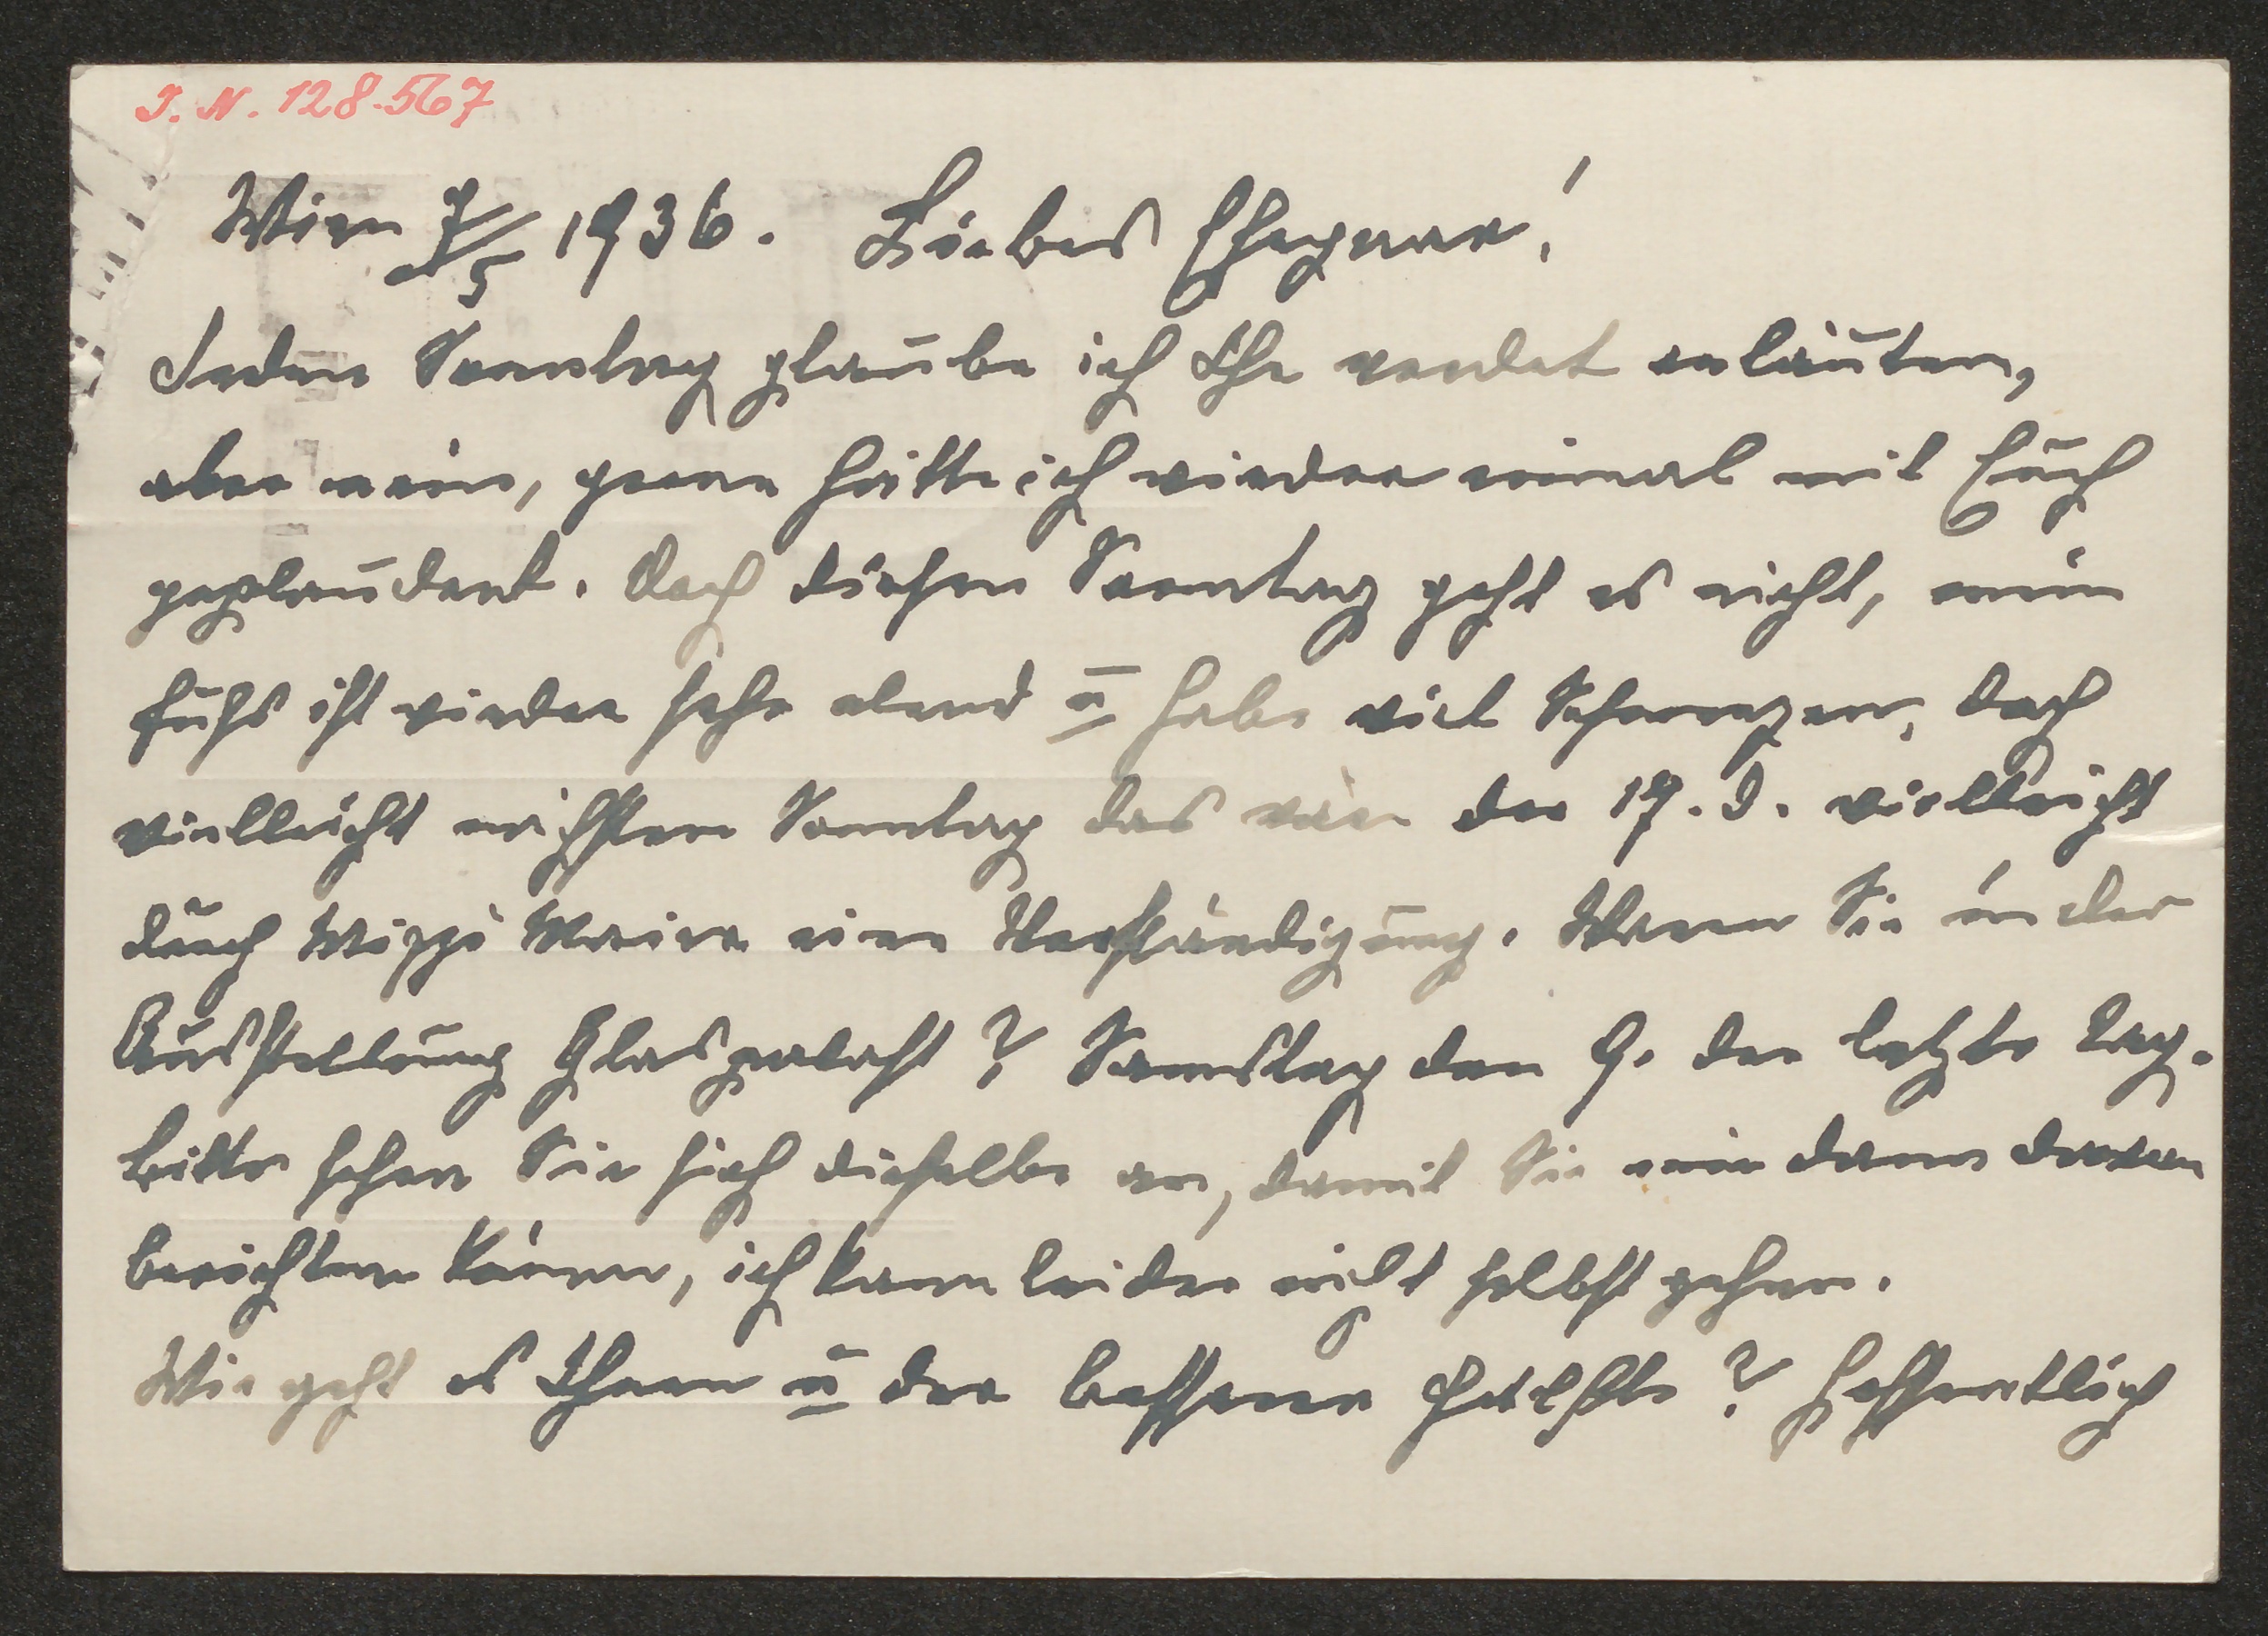 I. N. 128.567
Wien 7/5 1936. Liebes Ehepaar!
Jeden Sonntag glaube ich Ihr werdet anläuten,
aber nein, gerne hätte ich wieder einmal mit Euch
geplaudert. Doch diesen Sonntag geht es nicht, mein
Fuhs ist wieder sehr elend u habe viel Schmerzen, doch
vielleicht nächsten Sonntag das wär der 17. d. vielleicht
durch Mizzi eine Verständigung. Waren Sie in der
Ausstellung Glaspalast? Samstag den 9. der letzte Tag.
Bitte sehen Sie sich dieselbe an, damit Sie mir dann davon
berichten können, ich kann leider nicht selbst gehen.
Wie geht es Ihnen u der besseren Hälfte? Hoffentlich